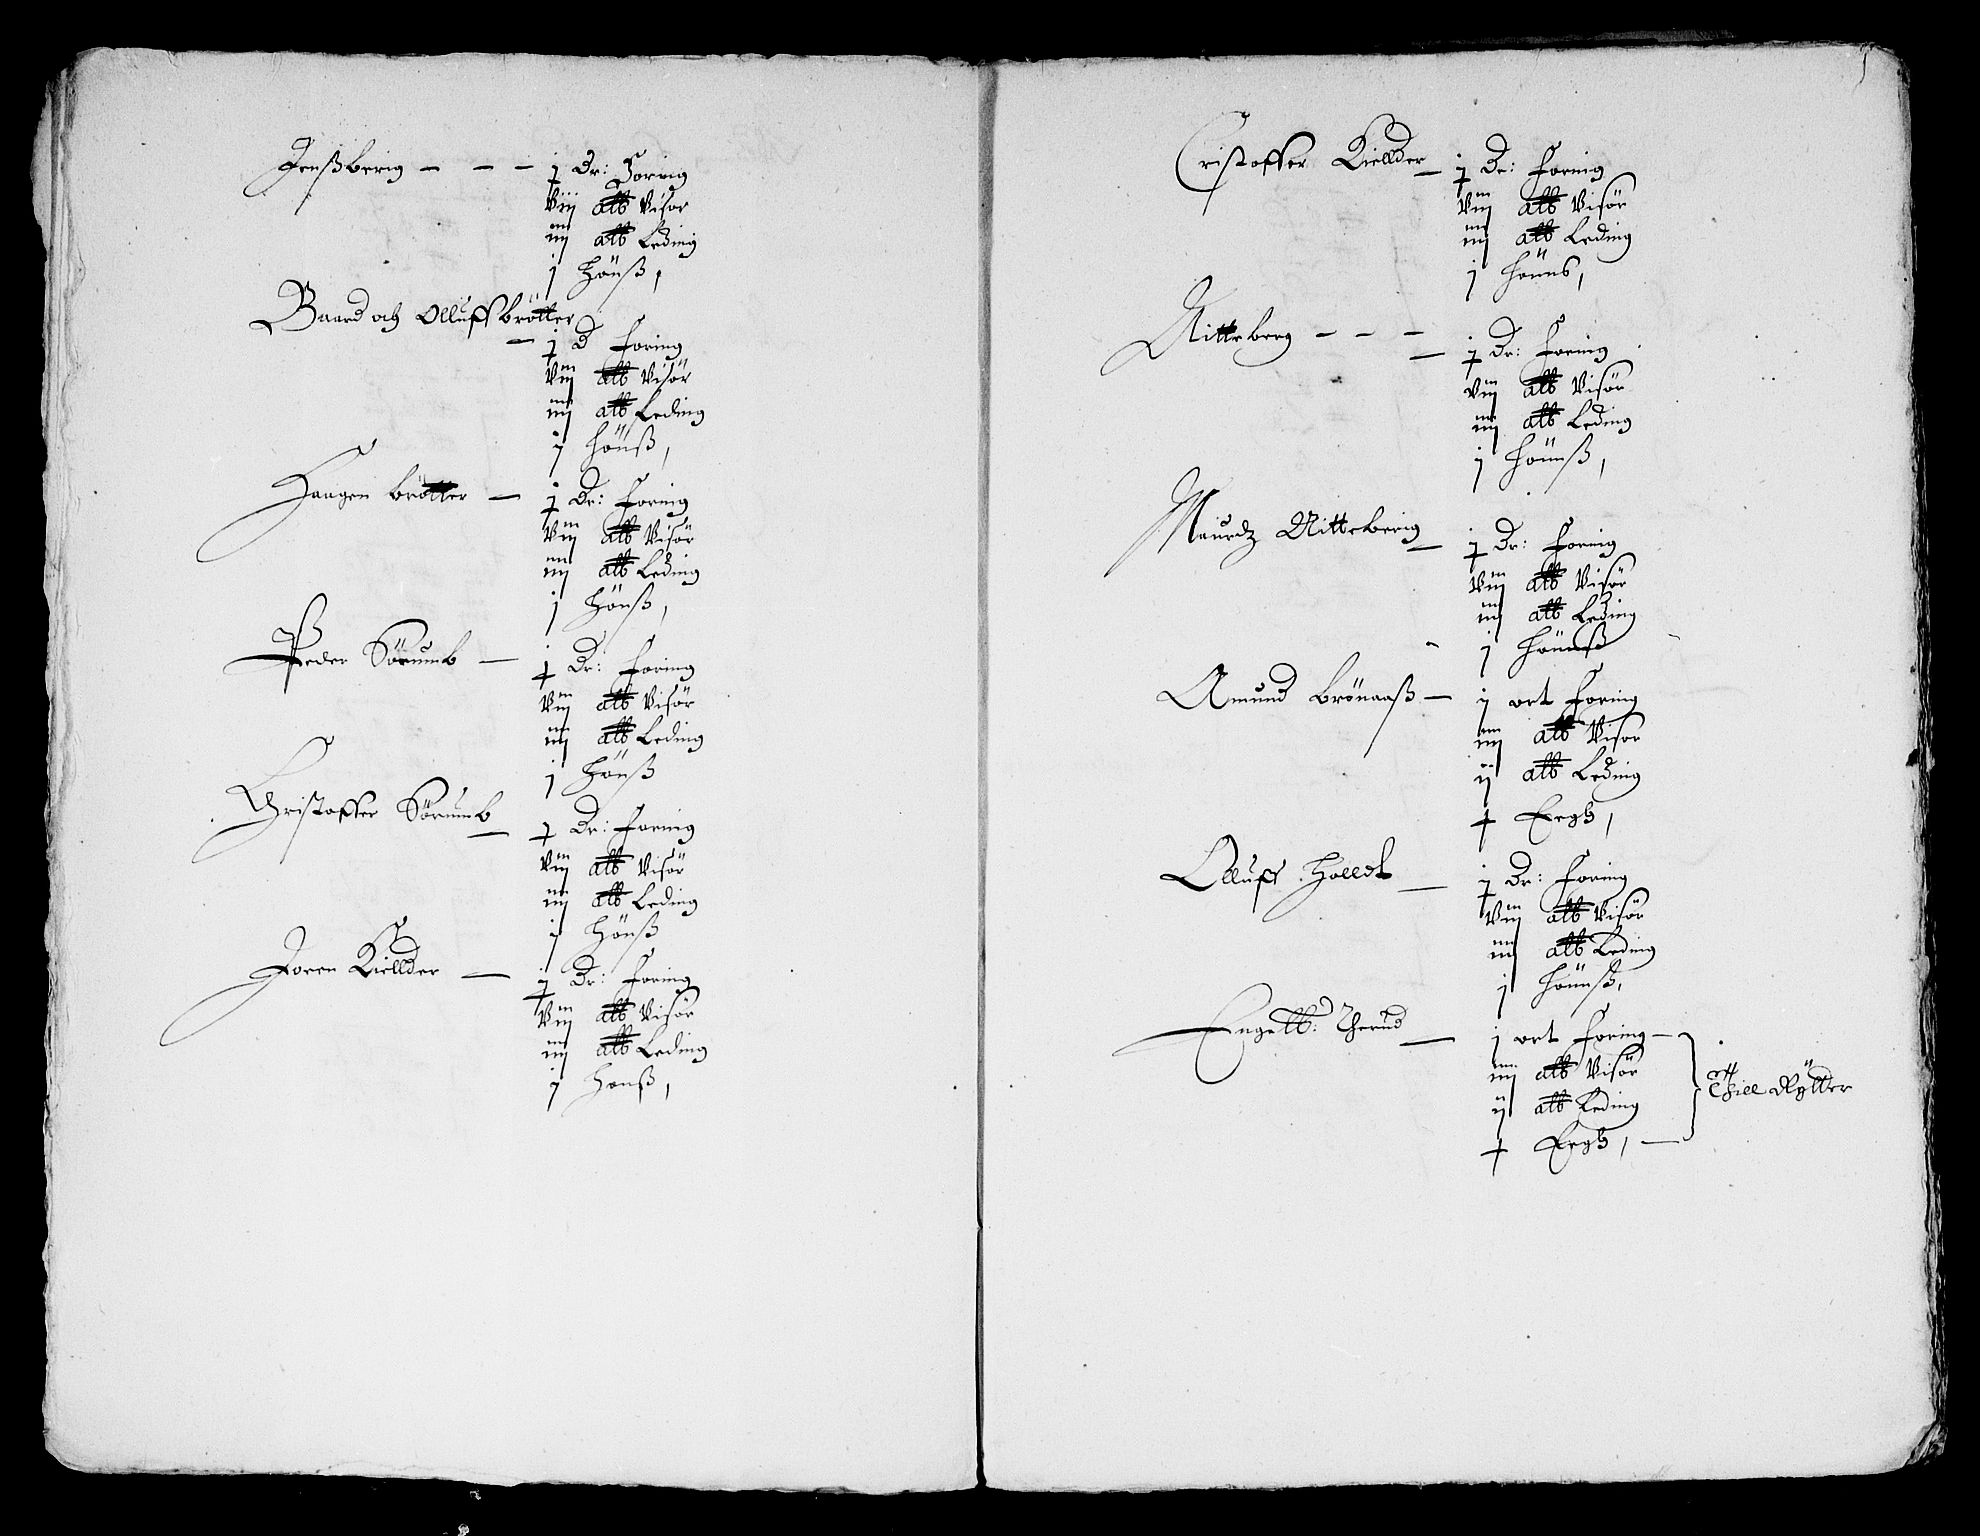 Jenßberig - - - j Dr: Forrig
Viij alb Visor
iiij alb Leding
j Hönß,
Baard och Olluff brötter
- j D Foring
Viij alb Visör
iiij alb Leding
j hönß,
Haagen brötter - j Dr: Foring
Viij alb Visör
iiij alb Leding
j Hönß,
Peder Sörumb - j Dr: Foring
Viij alb Visör
iiij alb Leding
j Hönß
Christoffer Sörumb
- j Dr: Foring
Viij alb Visör
iiij alb Leding
j Hönß
Joren Kiellder - j Dr: Foring
Viij alb Visör
iiij alb Leding
j honß,
Cristoffer Kiellder - j Dr: Foring
Viij alb Visör
iiij alb Leding
j hönns,
Nitteberg - - -
- j Dr: Foring
Viij alb Visör
iiij alb Leding
j hönnß,
Maurdz Nitteberig - j Dr: Foring
Viij alb Visör
iiij alb Leding
j hönnß
Amund Brönaaß - j ort Foring
iiij alb Visor
ij alb Leding
+ Eegh,
Olluff Holledt - j Dr: Foring
Viij alb Visör
iiij alb Leding
j hönnß,
Engelb: Therud - j ort Foring -
iiij alb Visör
ij alb Leding
+ Eegh, -
Thill Rÿtter